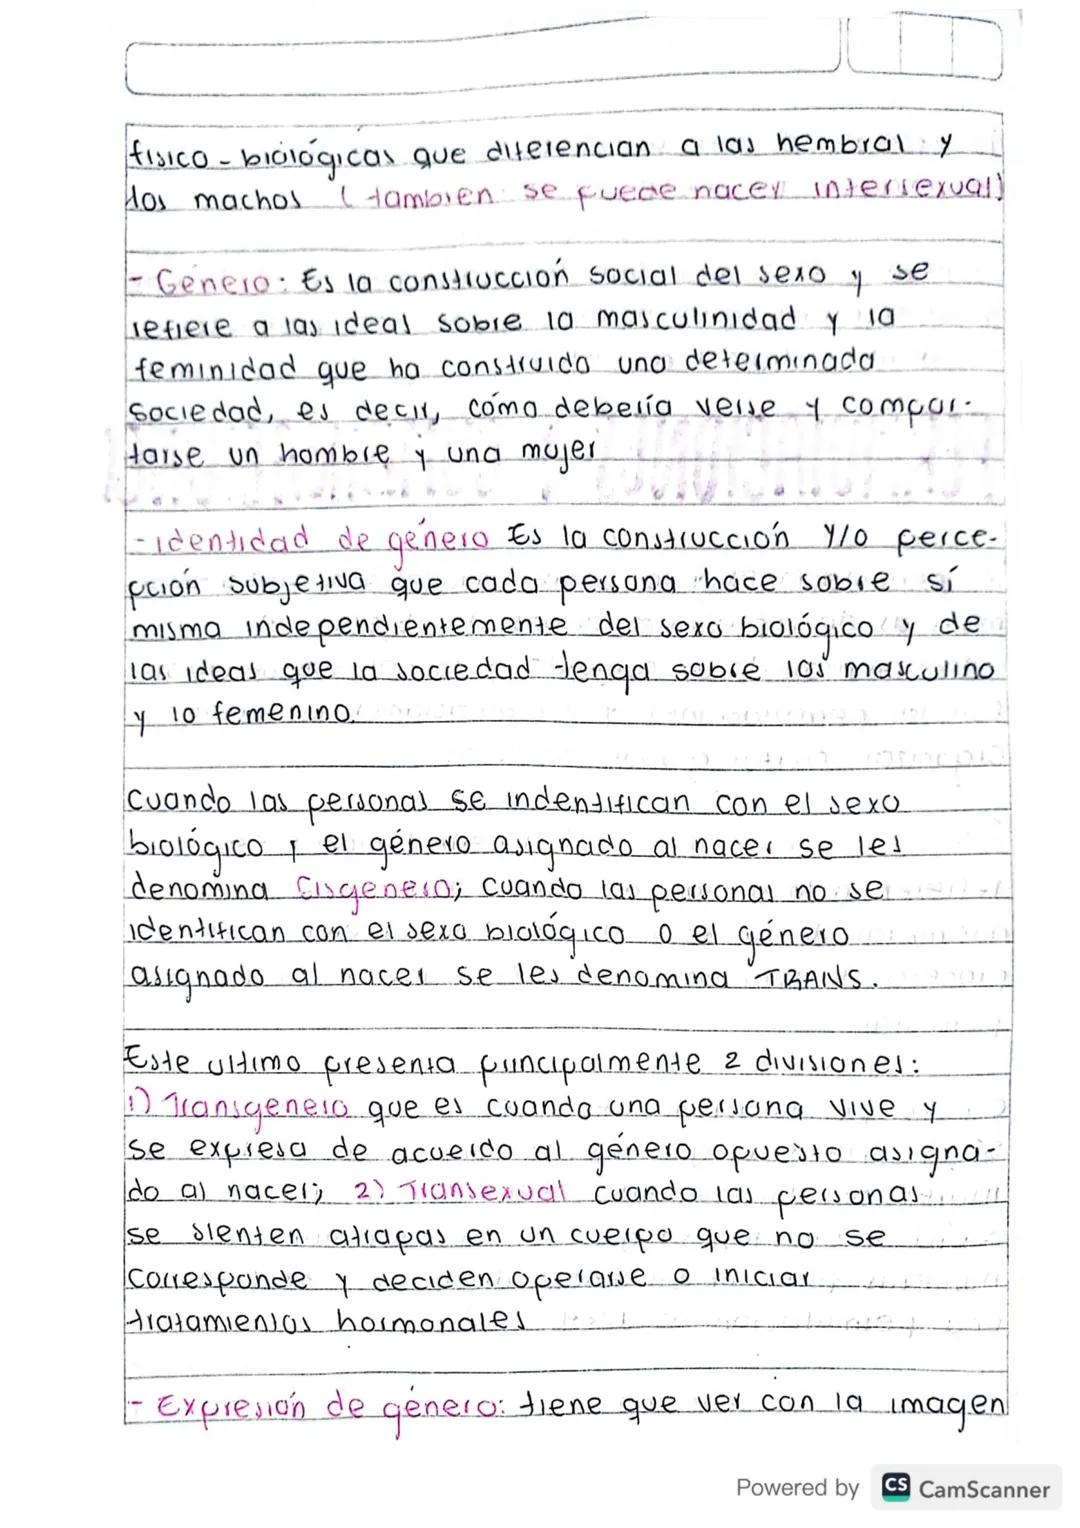 físico-biológicas que diferencian a las hembral y
los machos (tambien se puede nacer intersexual)
- Género: Es la construccion social del sexo y se
refiere a las ideal sobre la masculinidad y la
feminidad que ha construido una determinada
sociedad, es decir, cómo debería verse y compor-
tarse un hombre y una mujer
- identidad de género Es la construcción y/o perce-
pción subjetiva que cada persona hace sobre sí
misma independientemente del sexo biológico y de
las ideas que la sociedad tenga sobre los masculino
y lo femenino.
Cuando las personas se indentifican con el sexo
biológico y el género asignado al nacer se les
denomina Cisgenero; cuando las personas no se
identifican con el sexo biológico o el género
asignado al nacer se les denomina TRANS.
Este ultimo presenta principalmente 2 divisiones:
1) Transgenero que es cuando una persona vive y
se expresa de acuerdo al género opuesto asigna-
do al nacer; 2) Transexual cuando las personas
se sienten atrapas en un cuerpo que no se
corresponde y deciden operarse o iniciar
tratamientos hormonales
- Expresión de género: tiene que ver con la imagen
Powered by CS CamScanner